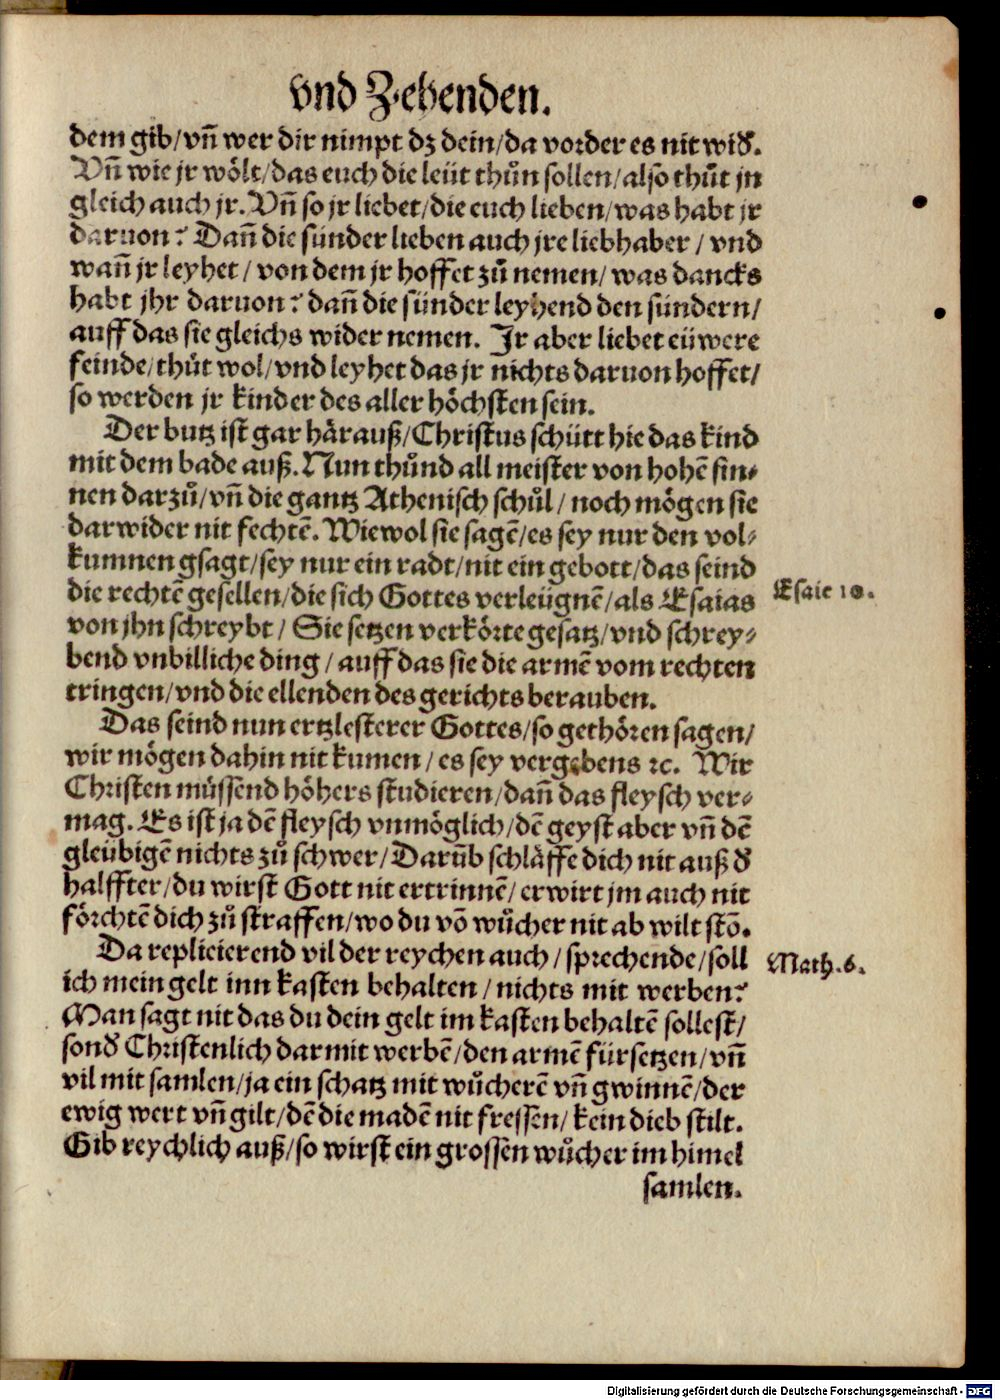 vnd Zehenden.
dem gib/vn̄ wer dir nimpt dz dein/da vorder es nit wid̕.
Vn̄ wie jr wölt/das euch die leüt thůn sollen/also thůt jn
gleich auch jr. Vn̄ so jr liebet/die euch lieben/was habt jr
daruon? Dan̄ die sünder lieben auch jre liebhaber / vnd
wan̄ jr leyhet / von dem jr hoffet zů nemen/ was dancks
habt jhr daruon? dan̄ die sünder leyhend den sündern/
auff das sie gleichs wider nemen. Jr aber liebet eüwere
feinde/thůt wol/vnd leyhet das jr nichts daruon hoffet/
so werden jr kinder des aller höchsten sein.
Der butz ist gar härauß/Christus schütt hie das kind
mit dem bade auß. Nun thůnd all meister von hohē sin⸗
nen darzů/vn̄ die gantz Athenisch schůl / noch mögen sie
darwider nit fechtē. Wiewol sie sagē/es sey nur den vol⸗
kumnen gsagt/sey nur ein radt/nit ein gebott/das seind
die rechtē gesellen/die sich Gottes verleügnē/als Esaias
von jhn schreybt / Sie setzen verkörte gesatz/vnd schrey⸗
bend vnbilliche ding / auff das sie die armē vom rechten
tringen/vnd die ellenden des gerichts berauben.
Esaie 10.
Das seind nun ertzlesterer Gottes/so gethören sagen/
wir mögen dahin nit kumen / es sey vergebens ꝛc. Wir
Christen müssend höhers studieren/dan̄ das fleysch ver⸗
mag. Es ist ja dē fleysch vnmöglich/dē geyst aber vn̄ dē
gleübigē nichts zů schwer/Darūb schläffe dich nit auß d̕
halffter/du wirst Gott nit ertrinnē/ er wirt jm auch nit
förchtē dich zů straffen/wo du vō wůcher nit ab wilt stō.
Da replicierend vil der reychen auch / sprechende/soll
ich mein gelt inn kasten behalten / nichts mit werben?
Man sagt nit das du dein gelt im kasten behaltē sollest/
sond̕ Christenlich darmit werbē/den armē fürsetzen/vn̄
vil mit samlen/ja ein schatz mit wůcherē vn̄ gwinnē/der
ewig wert vn̄ gilt/dē die madē nit fressen/ kein dieb stilt.
Gib reychlich auß/so wirst ein grossen wůcher im himel
Math. 6.
samlen.
Digitalisierung gefördert durch die Deutsche Forschungsgemeinschaft - DFG